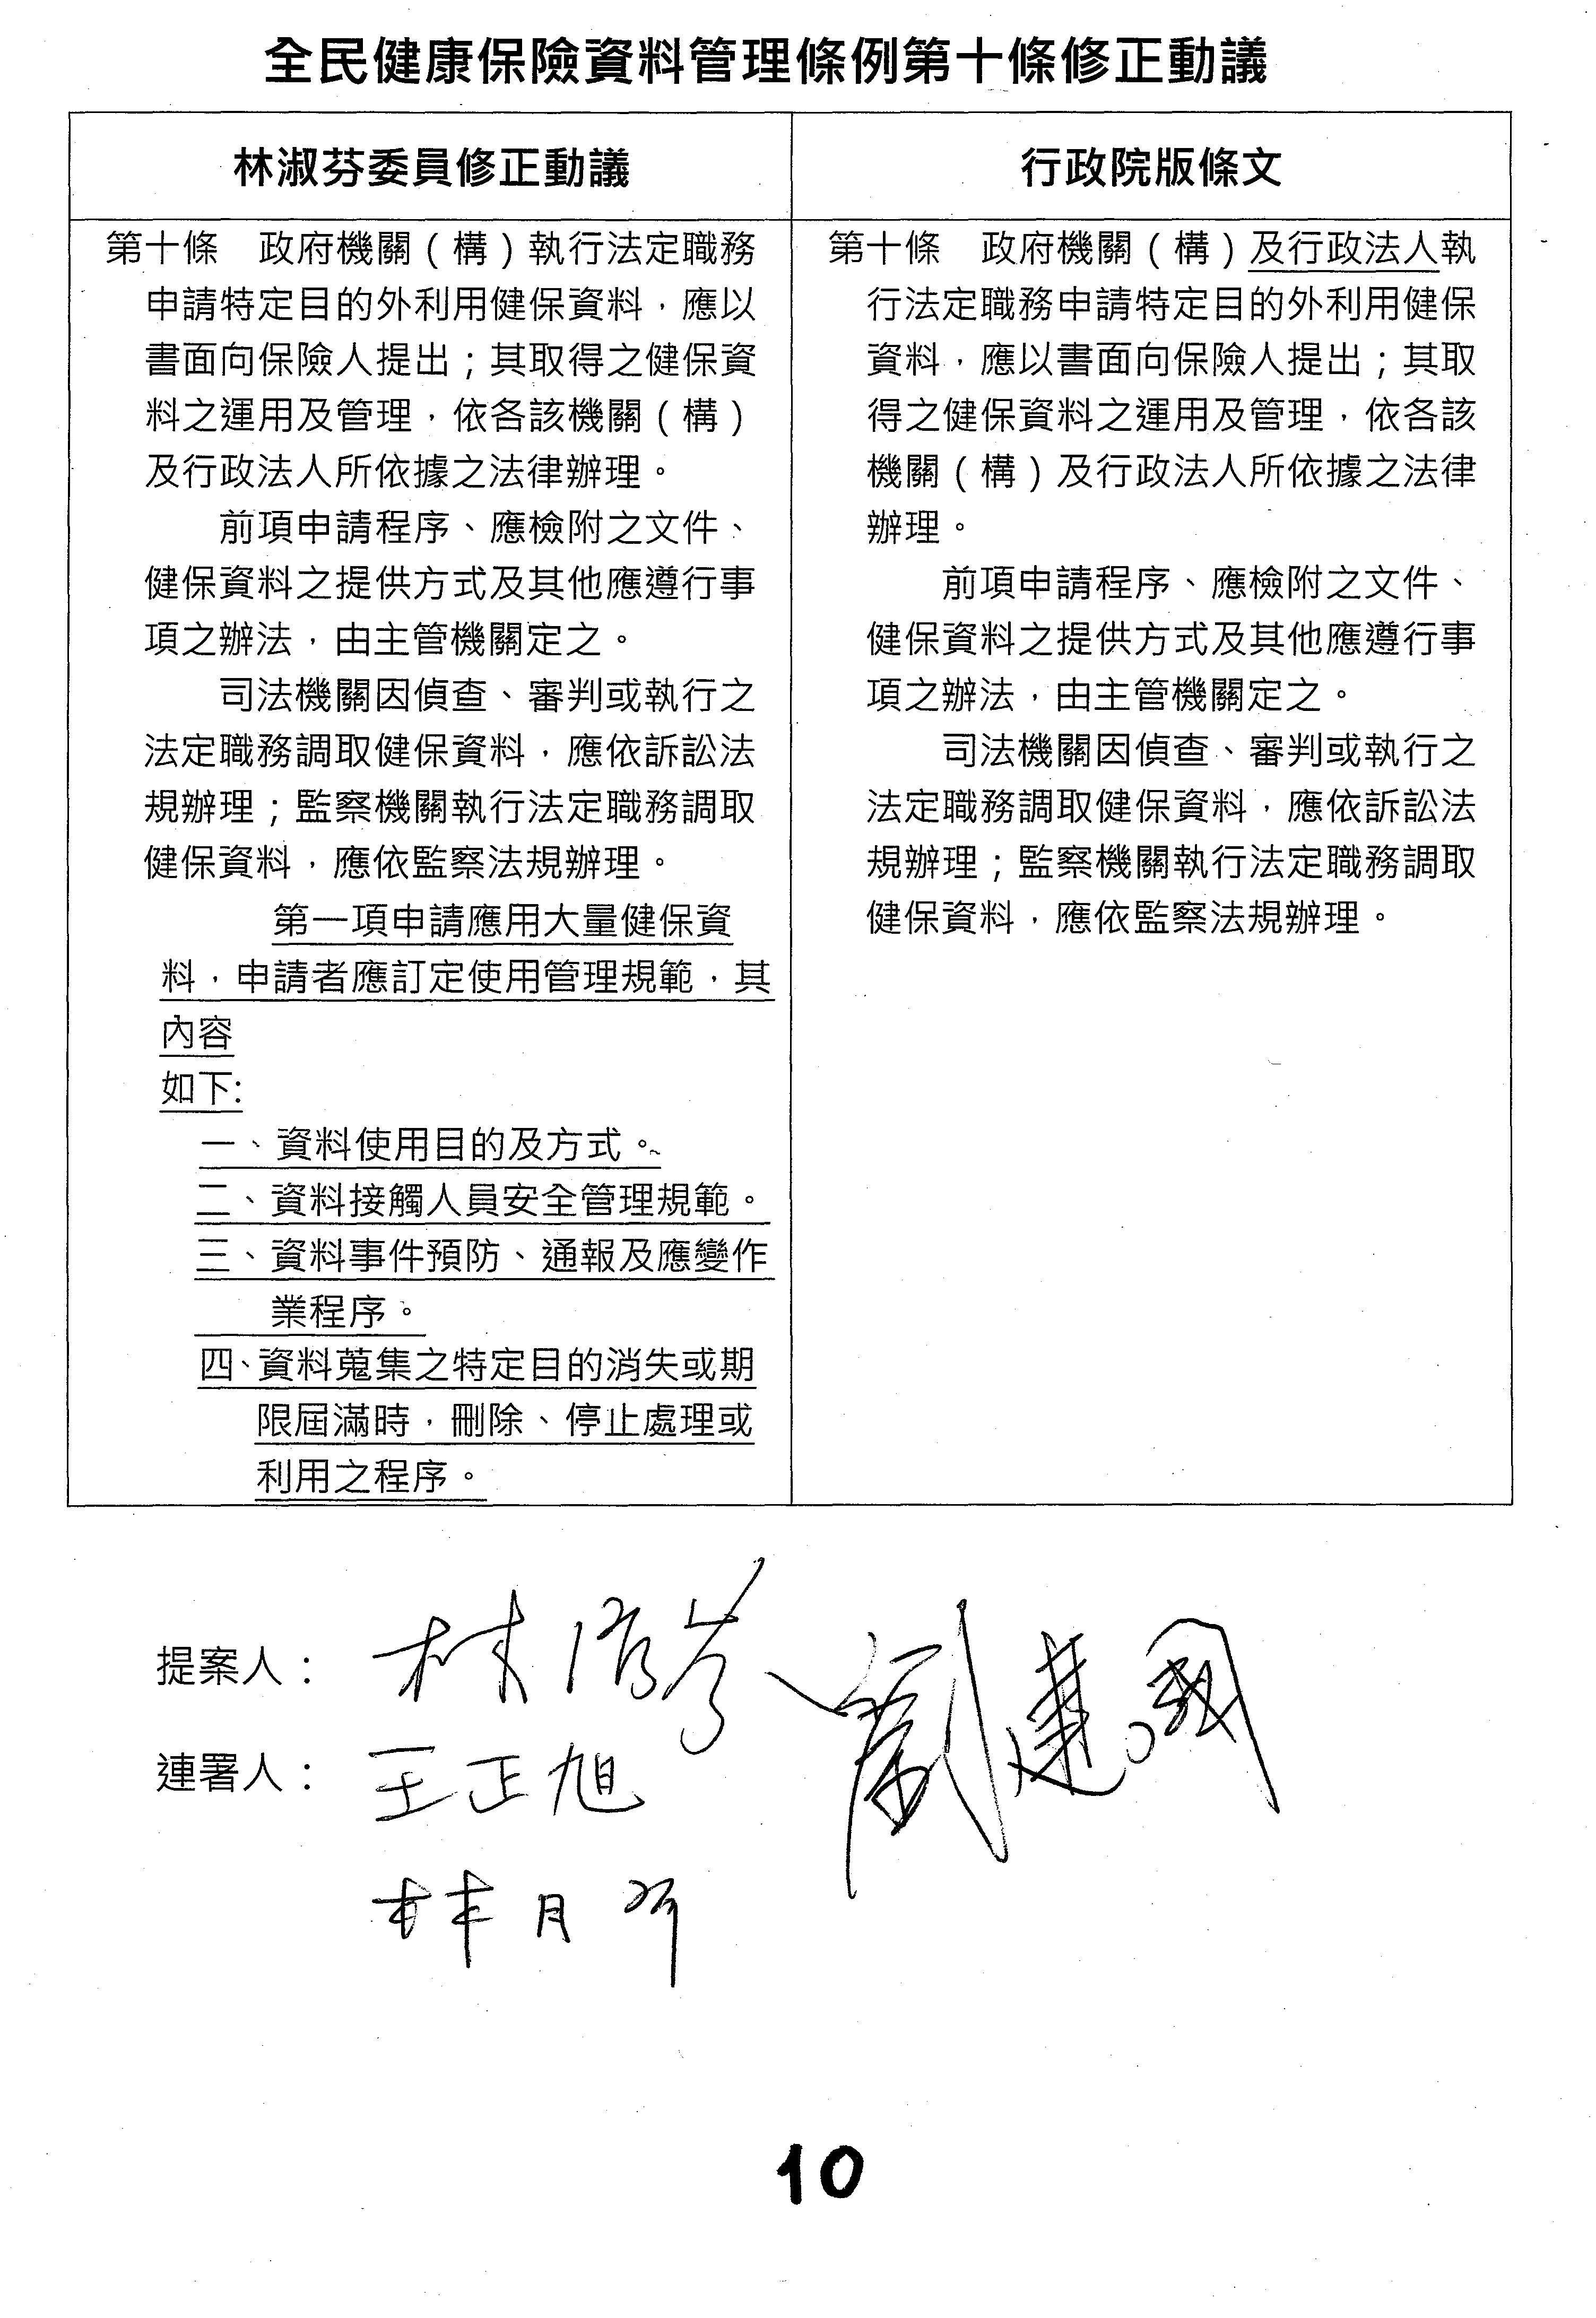 全民健康保險資料管理條例第十條修正動議
林淑芬委員修正動議
第十條　政府機關（構）執行法定職務
申請特定目的外利用健保資料，應以
書面向保險人提出；其取得之健保資
料之運用及管理，依各該機關（構）
及行政法人所依據之法律辦理。
前項申請程序、應檢附之文件、
健保資料之提供方式及其他應遵行事
項之辦法，由主管機關定之。
司法機關因偵查、審判或執行之
法定職務調取健保資料，應依訴訟法
規辦理；監察機關執行法定職務調取
健保資料，應依監察法規辦理。
第一項申請應用大量健保資
料，申請者應訂定使用管理規範，其
內容
如下:
一、資料使用目的及方式。
二、資料接觸人員安全管理規範。
三、資料事件預防、通報及應變作
業程序。
四、資料蒐集之特定目的消失或期
限屆滿時，刪除、停止處理或
利用之程序。
行政院版條文
第十條　政府機關（構）及行政法人執
行法定職務申請特定目的外利用健保
資料，應以書面向保險人提出；其取
得之健保資料之運用及管理，依各該
機關（構）及行政法人所依據之法律
辦理。
前項申請程序、應檢附之文件、
健保資料之提供方式及其他應遵行事
項之辦法，由主管機關定之。
司法機關因偵查、審判或執行之
法定職務調取健保資料，應依訴訟法
規辦理；監察機關執行法定職務調取
健保資料，應依監察法規辦理。
提案人：林淑芬 劉建國
連署人：王正旭
林月琴
10